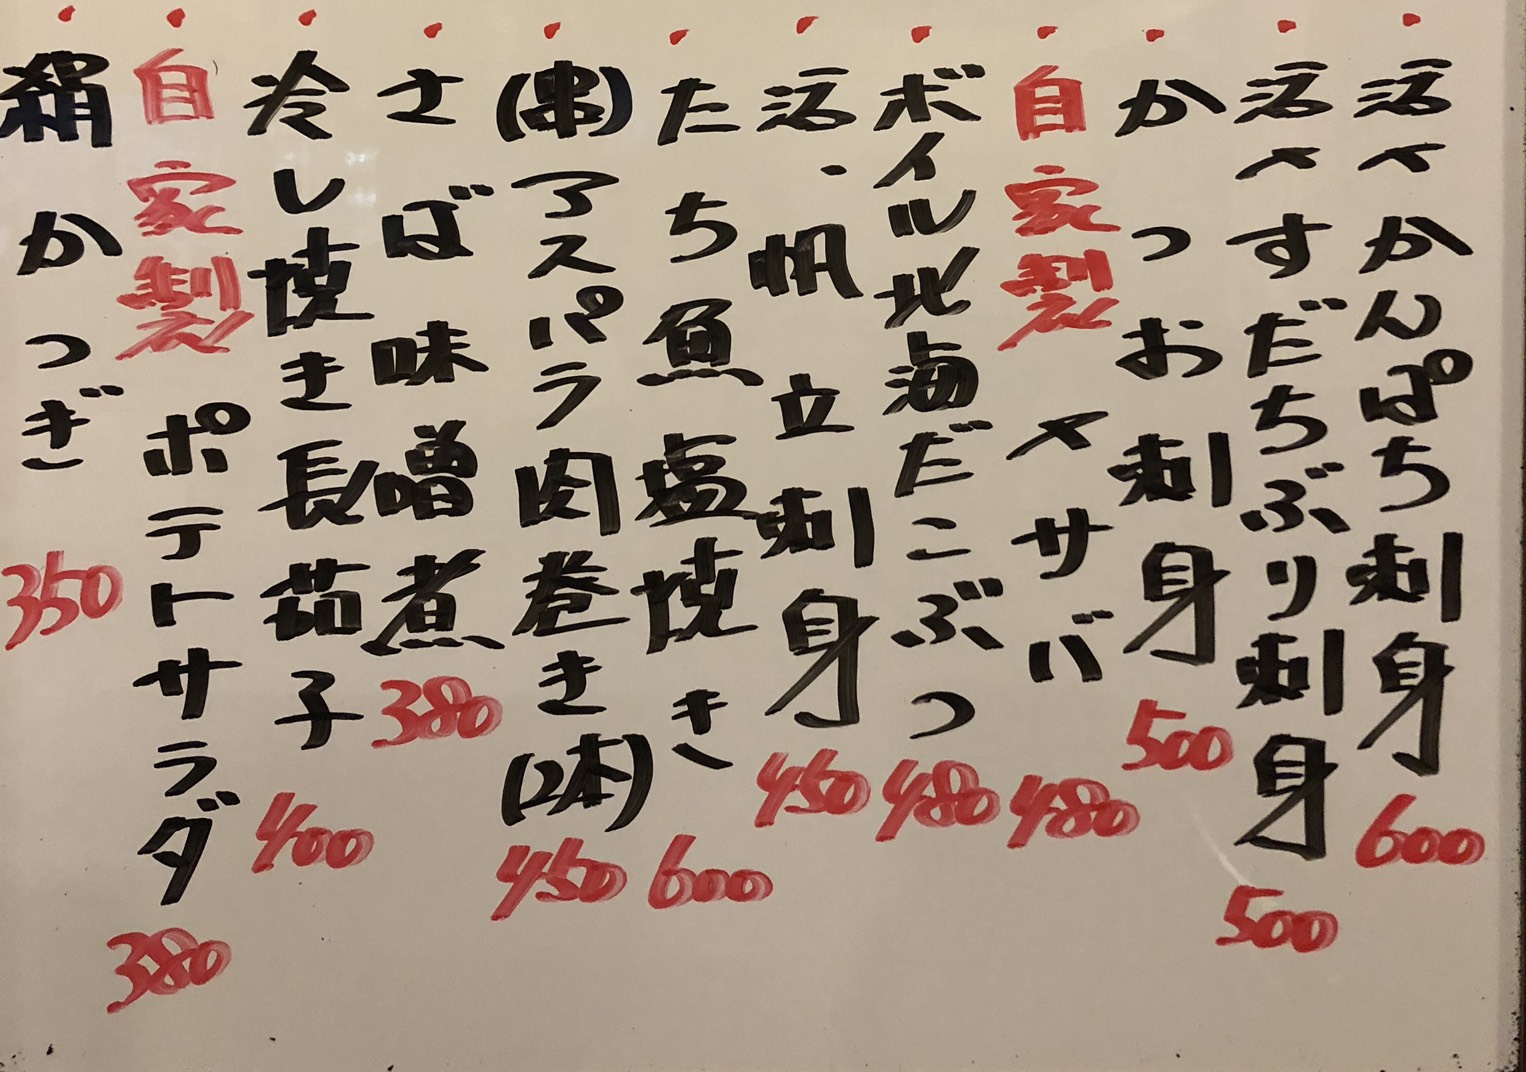 活〆かんぱち刺身 600
活〆すだちぶり刺身 500
かつお刺身 500
自家製 〆サバ 480
ボイル北海だこぶつ 480
活・帆立刺身 450
たち魚塩焼き 600
(串)アスパラ肉巻き(2本) 450
さば味噌煮 380
冷し焼き長茄子 400
自家製 ポテトサラダ 380
絹かつぎ 350